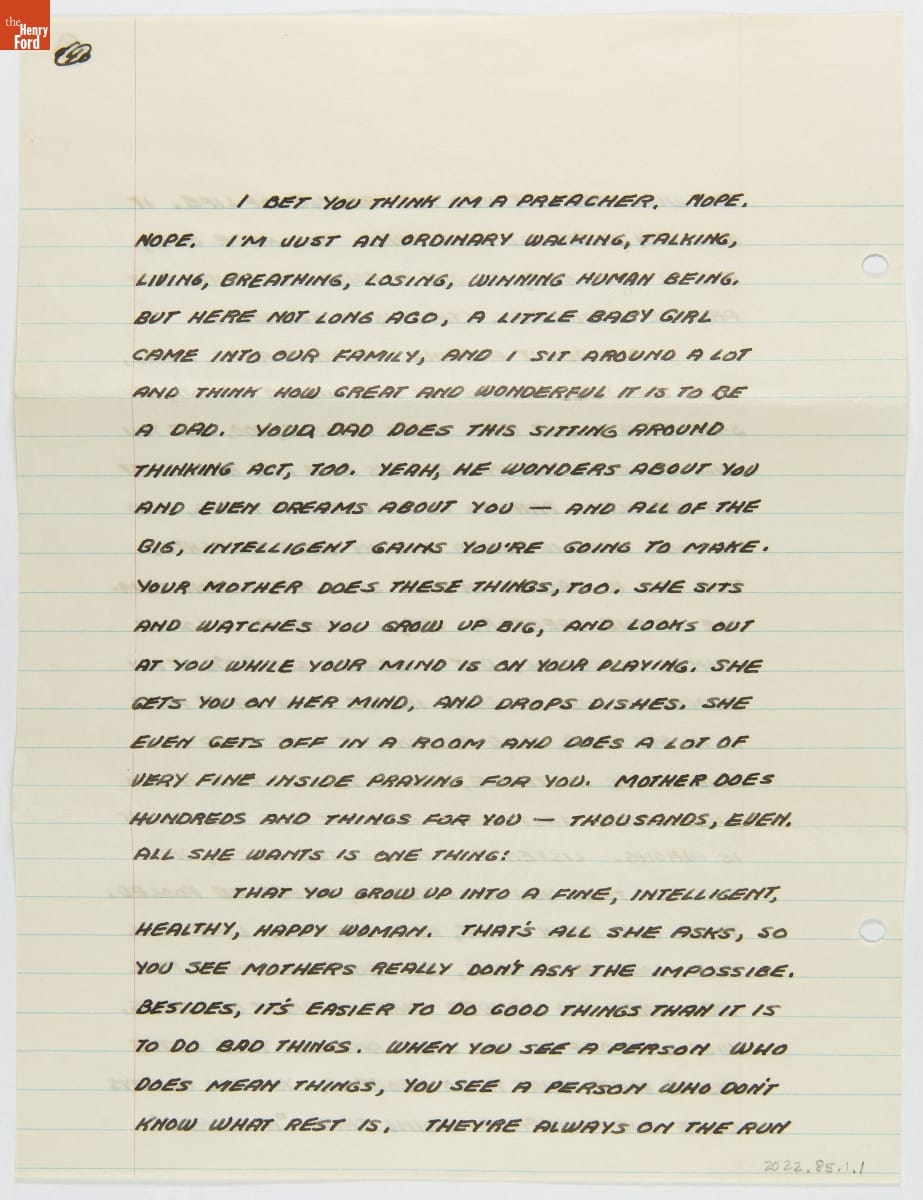 the
Henry
Ford
I BET YOU THINK IM A PREACHER. NOPE.
NOPE. I'M JUST AN ORDINARY WALKING, TALKING,
LIVING, BREATHING, LOSING, WINNING HUMAN BEING.
BUT HERE NOT LONG AGO, A LITTLE BABY GIRL
CAME INTO OUR FAMILY, AND I SIT AROUND A LOT
AND THINK HOW GREAT AND WONDERFUL IT IS TO BE
A DAD. YOUR DAD DOES THIS SITTING AROUND
THINKING ACT, TOO. YEAH, HE WONDERS ABOUT YOU
AND EVEN DREAMS ABOUT YOU — AND ALL OF THE
BIG, INTELLIGENT GAINS YOU'RE GOING TO MAKE.
YOUR MOTHER DOES THESE THINGS, TOO. SHE SITS
AND WATCHES YOU GROW UP BIG, AND LOOKS OUT
AT YOU WHILE YOUR MIND IS ON YOUR PLAYING. SHE
GETS YOU ON HER MIND, AND DROPS DISHES. SHE
EVEN GETS OFF IN A ROOM AND DOES A LOT OF
VERY FINE INSIDE PRAYING FOR YOU. MOTHER DOES
HUNDREDS AND THINGS FOR YOU — THOUSANDS, EVEN.
ALL SHE WANTS IS ONE THING:
THAT YOU GROW UP INTO A FINE, INTELLIGENT,
HEALTHY, HAPPY WOMAN. THAT'S ALL SHE ASKS, SO
YOU SEE MOTHERS REALLY DON'T ASK THE IMPOSSIBE.
BESIDES, IT'S EASIER TO DO GOOD THINGS THAN IT IS
TO DO BAD THINGS. WHEN YOU SEE A PERSON WHO
DOES MEAN THINGS, YOU SEE A PERSON WHO DON'T
KNOW WHAT REST IS. THEY'RE ALWAYS ON THE RUN
2022.85.1.1